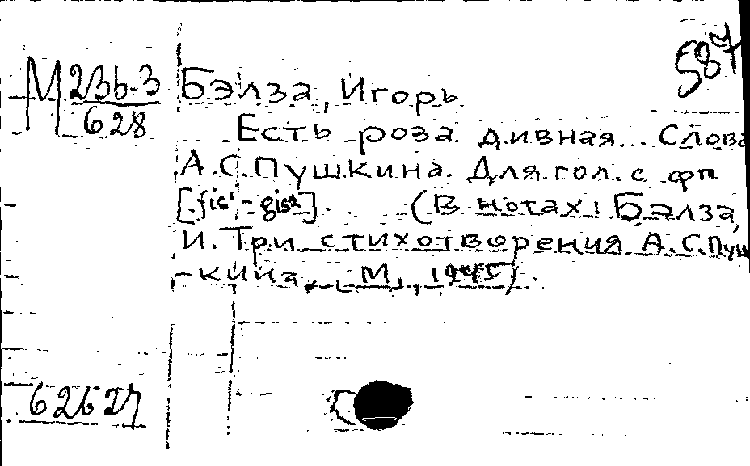 587
М 23б-3
628
Бэлза, Игорь
Есть роза дивная... Слова
А.С.Пушкина. Для гол. с фп
[fis¹-gis²]. (В нотах: Бэлза,
И. Три стихотворения А.С.Пуш
-кина. М., 1945).
62627